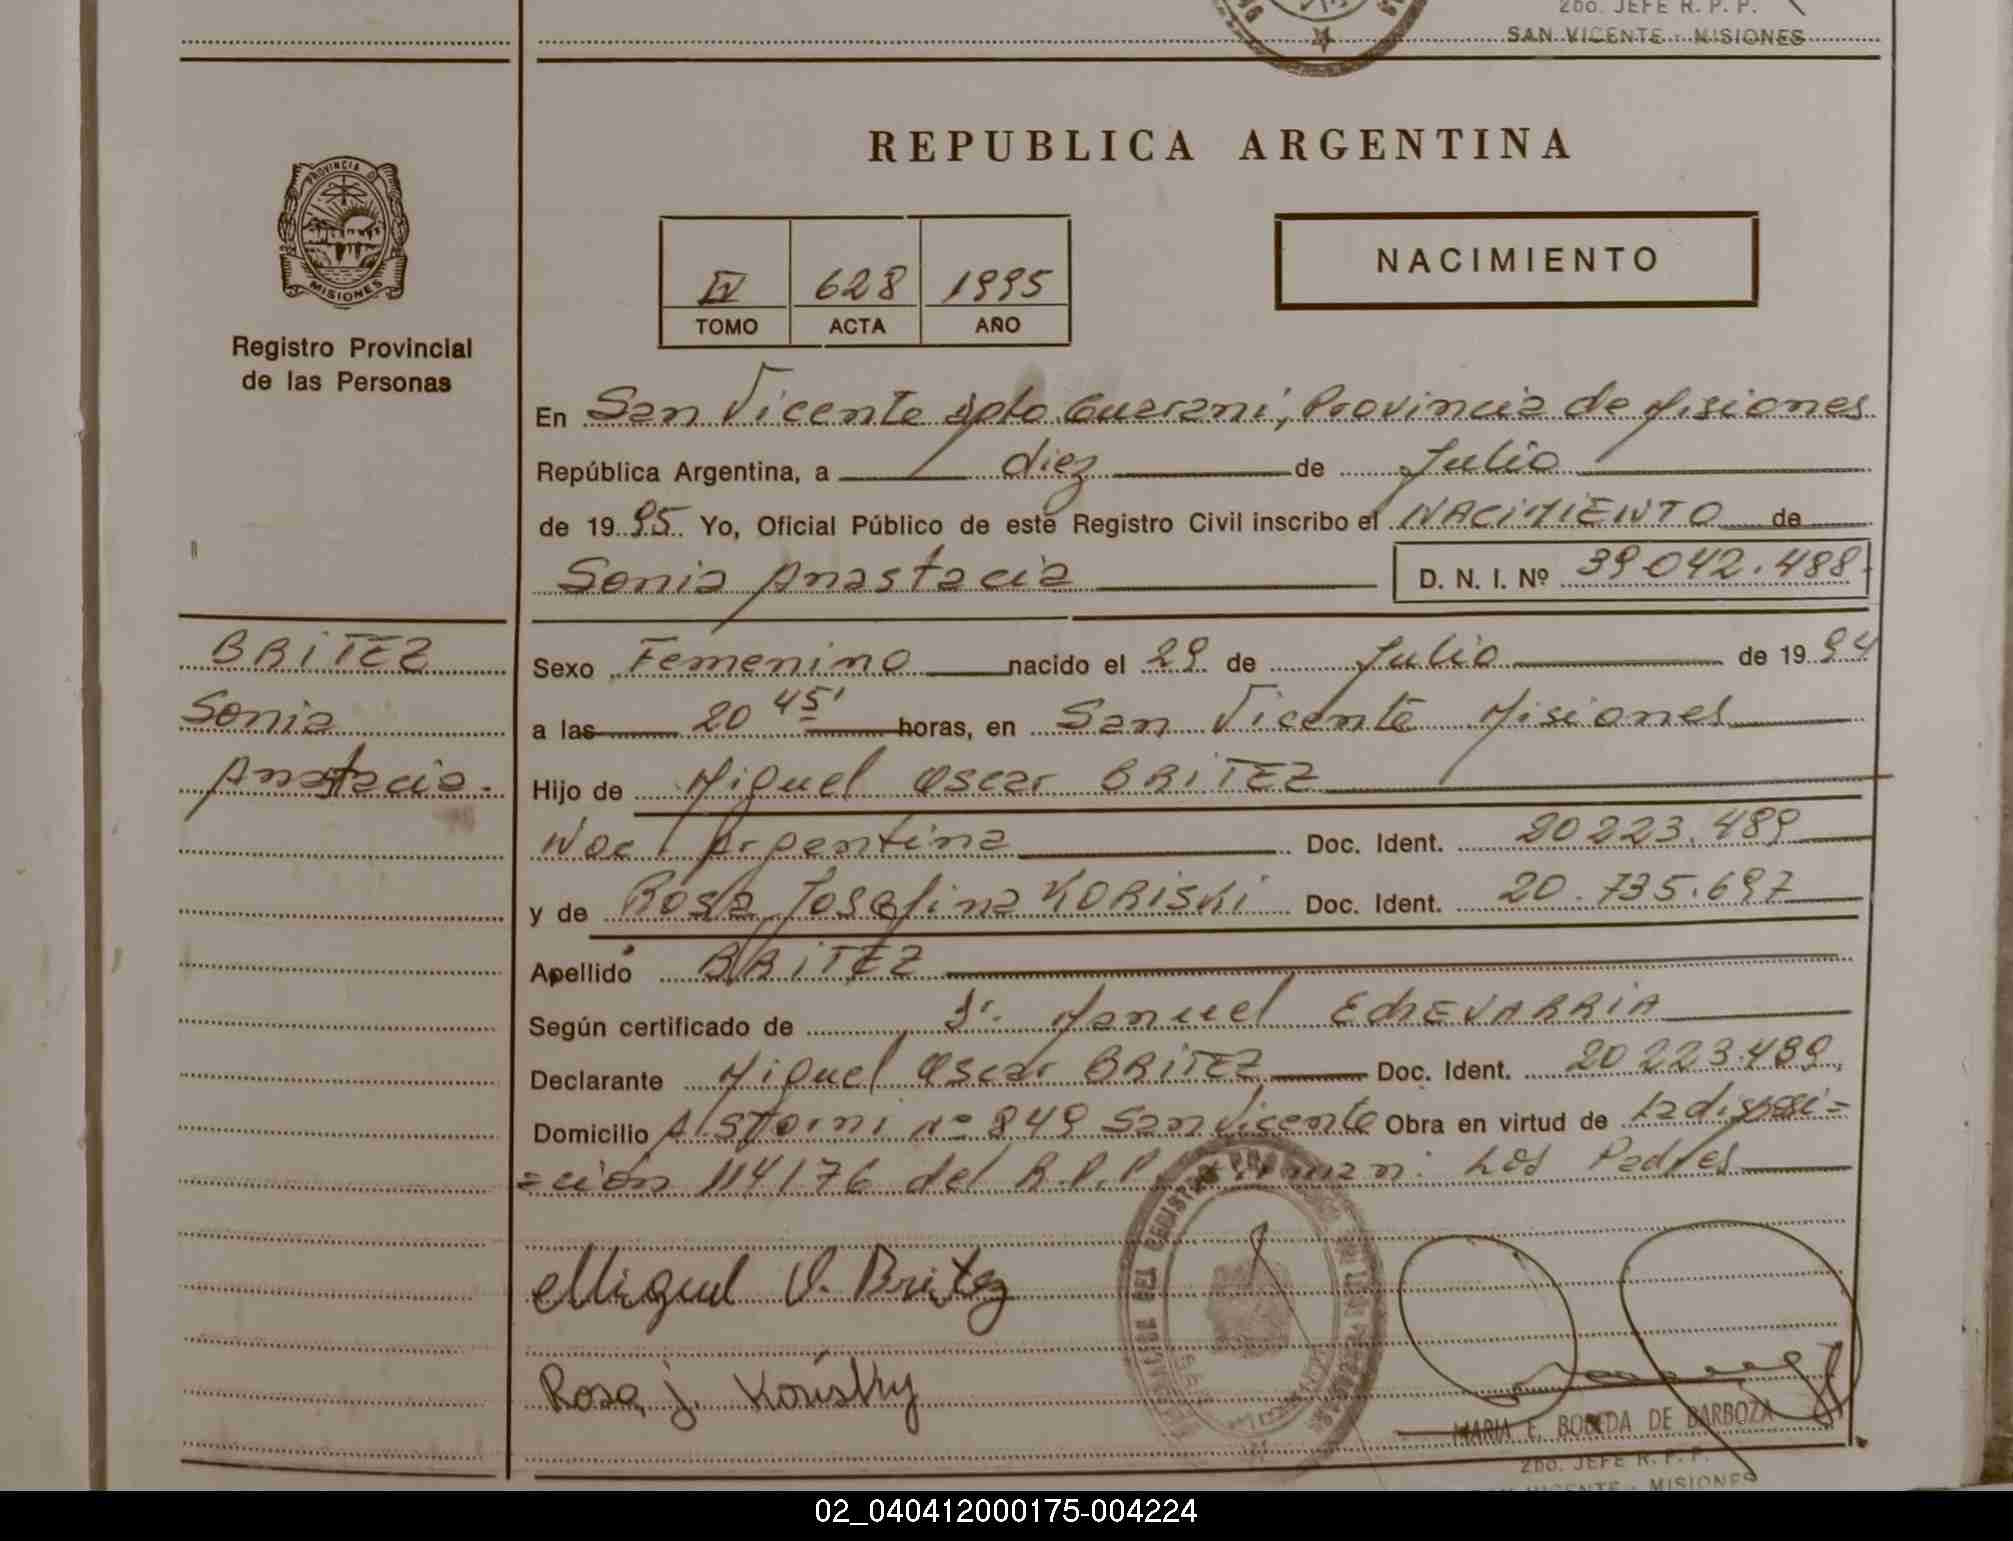 2do. JEFE R. P. P.
SAN VICENTE - MISIONES
REPUBLICA ARGENTINA
PROVINCIA D
MISIONES
Registro Provincial
de las Personas
IV 628 1995
TOMO ACTA AÑO
NACIMIENTO
En San Vicente Dpto Guarani, Provincia de Misiones
República Argentina, a diez de Julio
de 1995. Yo, Oficial Público de este Registro Civil inscribo el NACIMIENTO de
Sonia Anastacia D. N. I. Nº 39.042.488.
BRITEZ
Sonia
Anastacia.
Sexo Femenino nacido el 29 de Julio de 1994
a las 20 45' horas, en San Vicente Misiones
Hijo de Miguel Oscar BRITEZ
Nac. Argentina Doc. Ident. 20 223.489
y de Rosa Josefina KORISKI Doc. Ident. 20.735.697
Apellido BRITEZ
Según certificado de Dr. Manuel EchEVARRIA
Declarante Miguel Oscar BRITEZ Doc. Ident. 20 223.489,
Domicilio Alstorni nº 849 San Vicente Obra en virtud de La disposi=
=ción 114/76 del R.P.P. Los Padres
Miguel O. Britez
Rosa J. Korisky
MARIA E. BOBEDA DE BARBOZA
2do. JEFE R. P. P.
SAN VICENTE - MISIONES
02_040412000175-004224